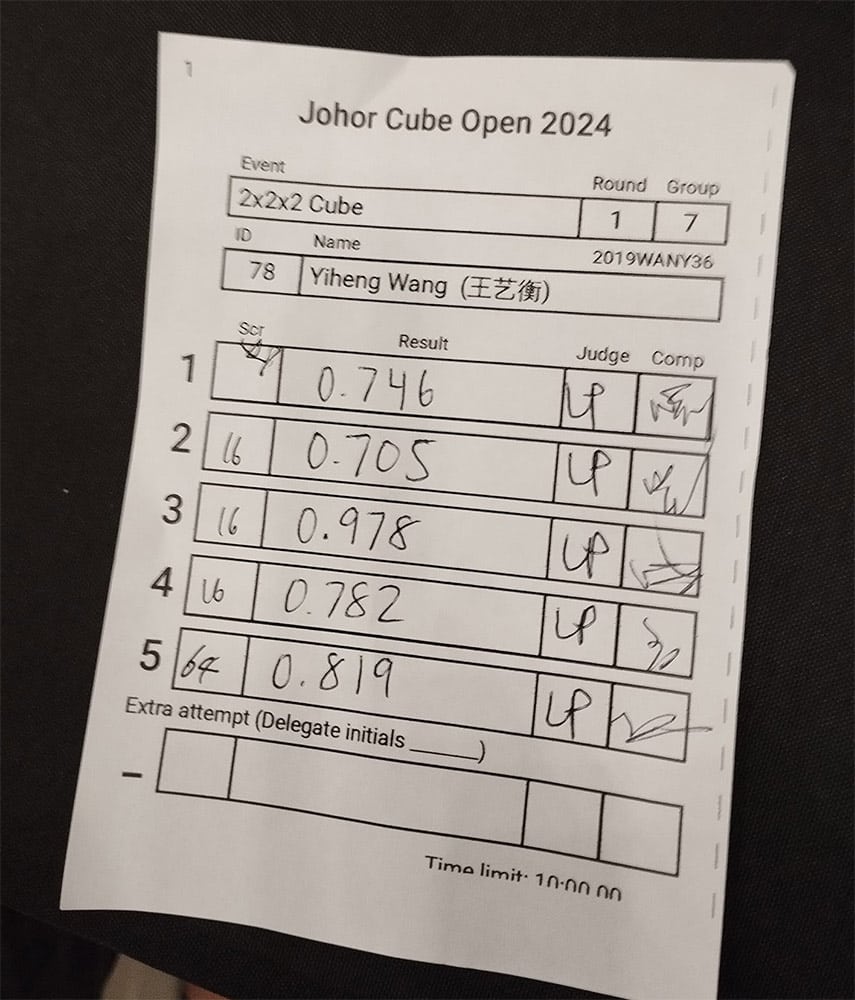 1
Johor Cube Open 2024
Event Round Group
2x2x2 Cube 1 7
ID Name 2019WANY36
78 Yiheng Wang (王艺衡)
Scr Result Judge Comp
1 0.746 LP
2 16 0.705 LP
3 16 0.978 LP
4 16 0.782 LP
5 64 0.819 LP
Extra attempt (Delegate initials ______)
–
Time limit: 10:00.00